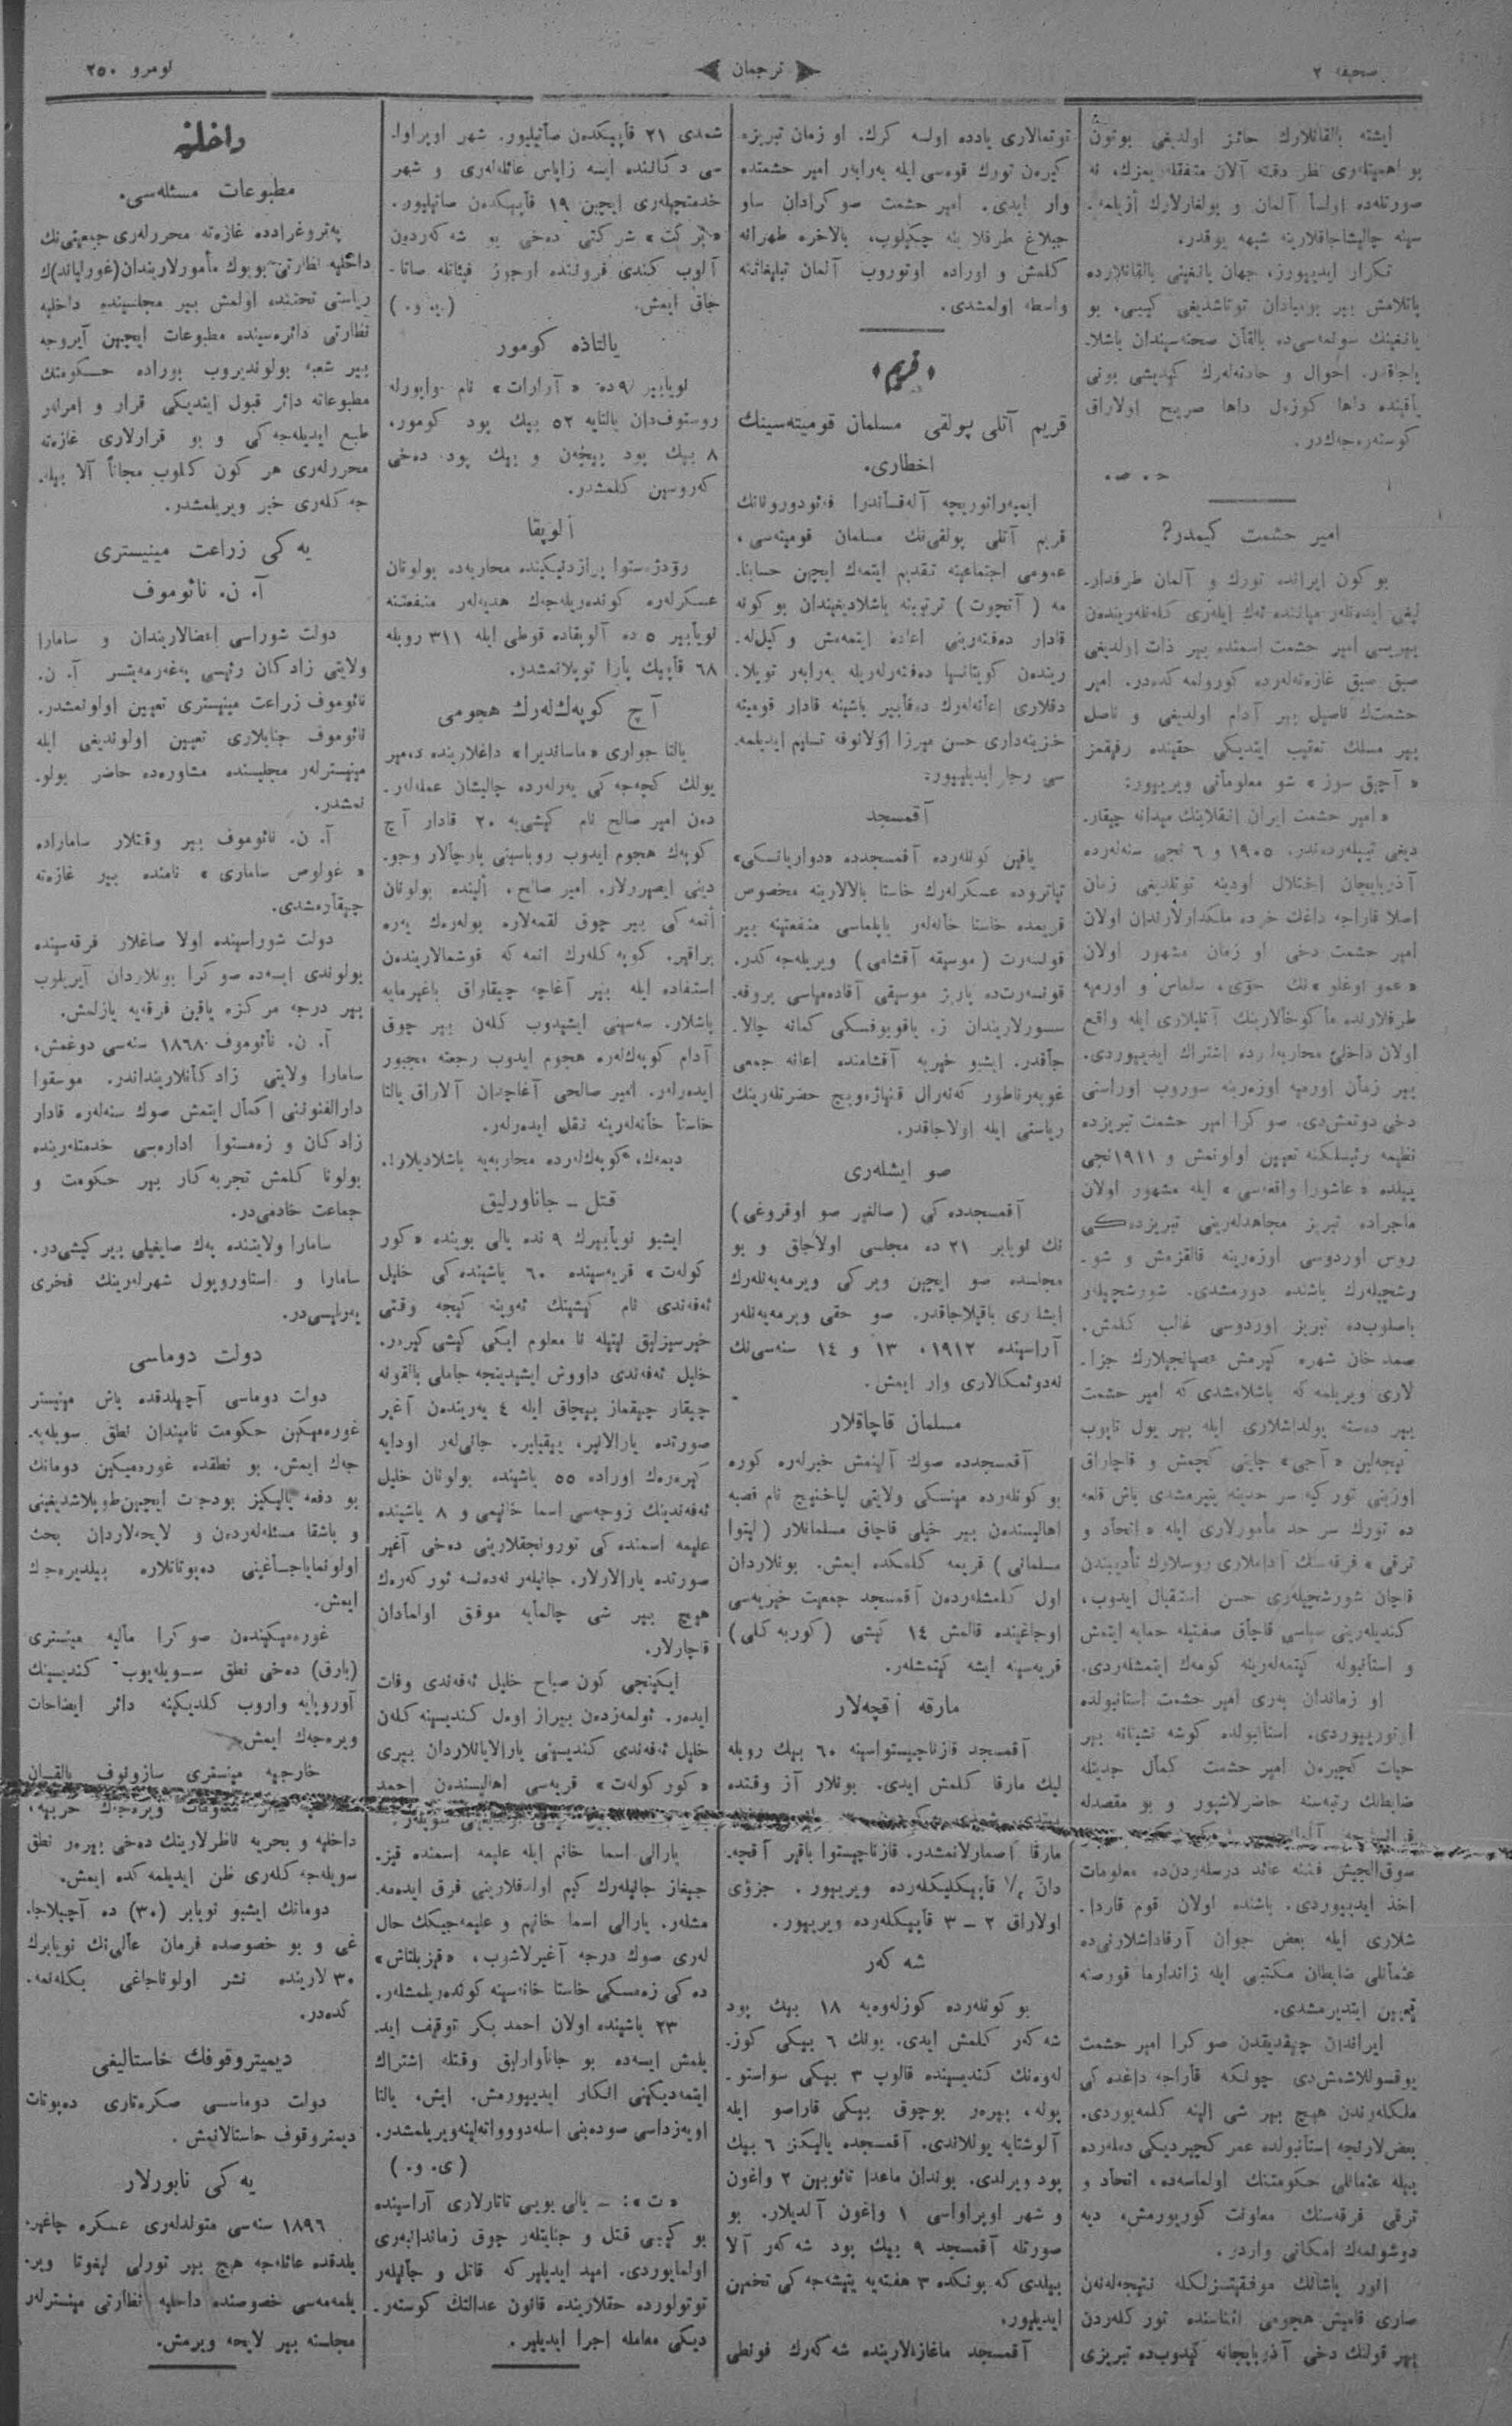 صحیفه ٢
ترجمان
نومرو ٢٥٠
ایشته بالقانلارك حائز اولدیغی بوتون
بو اهمیتلەری نظر دقته آلان متفقلەریمزك، نه
صورتلەده اولسا آلمان و بولغارلارك أزیلمه‌
سینه چالیشاجاقلارینه شبهه یوقدر.
تكرار ایدییورز، جهان یانغینی بالقانلارده
یانغینك سونمەسی‌ده بالقان صحنه‌سیندان باشلا‌
یاجاقدر. احوال و حادثه‌لەرك كیدیشی بونی
یاقینده داها كوزەل داها صریح اولاراق
كوستەرەجەكدر.
امیر حشمت كیمدر؟
بو كون ایرانده تورك و آلمان طرفدار‌
بیریسی امیر حشمت اسمنده بیر ذات اولدیغی
صیق صیق غازەتەلەرده كورولمەكدەدر. امیر
حشمتك ناصیل بیر آدام اولدیغی و ناصل
بیر مسلك تعقیب ایتدیكی حقینده رفیقمز
« آچیق سوز » شو معلوماتی ویرییور:
« امیر حشمت ایران انقلابنك میدانه چیقار‌
دیغی تیپلەردەندر. ١٩٠٥ و ٦ نجی سنه‌لەرده
آذربایجان اختلال اودینه توتلدیغی زمان
اصلا قاراجه داغك خرده ملكدارلارندان اولان
امیر حشمت دخی او زمان مشهور اولان
« عمو اوغلو »نك خوی، سلماس و اورمیه
طرفلارنده ماكو خانلارینك آتلیلاری ایله واقع
اولان داخلی محاربه‌لرده اشتراك ایدییوردی.
بیر زمان اورمیه اوزەرینه سوروب اوراسنی
دخی دوتمش‌دی. صوكرا امیر حشمت تبریزده
نظمیه رئیسلكنه تعیین اولونمش و ١٩١١ نجی
ییلده « عاشورا واقعه‌سی » ایله مشهور اولان
ماجراده تبریز مجاهدلەرینی تبریزده‌كی
روس اوردوسی اوزەرینه قالقزمش و شو‌
رشجیلەرك باشنده دورمشدی. شورشجیلەر
باصلوب‌ده تبریز اوردوسی غالب كلمش.
صمد خان شهره كیرمش عصیانجیلارك جزا‌
لاری ویریلمه‌كه باشلامشدی كه امیر حشمت
بیر دسته یولداشلاری ایله بیر یول تاپوب
اوزینی توركیه سرحدینه یتیرمشدی باش قلعه
ده تورك سرحد مأمورلاری ایله « اتحاد و
ترقی » فرقه‌سنك آداملاری روسلارك تأدیبندن
قاچان شورشجیلەری حسن استقبال ایدوب،
كندیلەرینی سیاسی قاچاق صفتیله حمایه ایتمش
و استانبوله كیتمەلەرینه كومەك ایتمشلەردی.
او زماندان بەری امیر حشمت استانبولده
اوتورییوردی. استانبولده كوشه نشینانه بیر
حیات كچیرەن امیر حشمت كمال جدیتله
ضابطانك رتبه‌سنه حاضرلاشیور و بو مقصدله
سوق‌الجیش فننه عائد درسلەردن‌ده معلومات
اخذ ایدییوردی. باشنده اولان قوم قاردا‌
شلاری ایله بعض جوان آرقاداشلارنی‌ده
عثمانلی ضابطان مكتبی ایله ژاندارما قورصنه
تعیین ایتدیرمشدی.
ایراندان چیقدیقدن صوكرا امیر حشمت
یوقسوللاشمش‌دی چونكه قاراجه داغده كی
ملكلەرندن هیچ بیر شی الینه كلمەیوردی.
بعض‌لارنجه استانبولده عمر كچیردیكی دملەرده
بیله عثمانلی حكومتنك اولماسه‌ده، اتحاد و
ترقی فرقه‌سنك معاونت كوریورمش، دیه
دوشونمەك امكانی واردر.
انور پاشانك موفقیتسزلكله نتیجه‌لەنەن
صاری قامیش هجومی اثناسنده توركلەردن
بیر قولنك دخی آذربایجانه كیدوب‌ده تبریزی
توتمالاری یادده اولسه كرك. او زمان تبریزه
كیرەن تورك قوەسی ایله بەرابەر امیر حشمتده
وار ایدی. امیر حشمت صوكرادان ساو
جبلاغ طرفلارینه چكیلوب، بالاخره طهرانه
كلمش و اوراده اوتوروب آلمان تبلیغاتنه
واسطه اولمشدی.
﴿ قریم ﴾
قریم آتلی پولقی مسلمان قومیته‌سینك
اخطاری.
ایمپەراتوریچه آلەقساندرا فەئودورونانك
قریم آتلی پولقی‌نك مسلمان قومیته‌سی،
عمومی اجتماعینه تقدیم ایتمەك ایچین حسابنا‌
مه ( آتچوت ) ترتیبنه باشلادیغیندان بو كونه
قادار دەفتەرینی اعاده ایتمەمش وكیل‌لە‌
ریندەن كویتانسیا دەفتەرلەریله بەرابەر توپلا‌
دقلاری اعانەلەرك دەقابیر باشینه قادار قومیته
خزینه‌داری حسن میرزا اوْلانوفه تسلیم ایدیلمه‌
سی رجا ایدیلیییور.
آقمسجد
یاقین كونلەرده آقمسجدده «دواریانسكی»
تیاتروده عسكرلەرك خاستا بالالارینه مخصوص
قریمده خاستا خانه‌لەر یاپلماسی منفعتینه بیر
قونسەرت (موسیقه آقشامی) ویریلەجەكدر.
قونسەرت‌ده بارز موسیقی آقادەمیاسی پروفه‌
سسورلاریندان ز. یاقوبوفسكی كمانه چالا‌
جاقدر. ایشبو خیریه آقشامنده اعانه جمعی
غوبەرناطور كەنەرال قنیاژەویچ حضرتلەرینك
ریاستی ایله اولاجاقدر.
صو ایشلەری
آقمسجدده‌كی (صالغیر صو اوقروغی)
نك نویابر ٢١ ده مجلسی اولاجاق و بو
مجلسده صو ایچین ویركی ویرمەیەنلەرك
ایشلەری باقیلاجاقدر. صو حقی ویرمەیەنلەر
آراسینده ١٩١٢، ١٣ و ١٤ سنه‌سی‌نك
نەدوئمكالاری وار ایمش.
مسلمان قاچاقلار
آقمسجدده صوك آلینمش خبرلەره كوره
بو كونلەرده مینسكی ولایتی لیاخنیچ نام قصبه
اهالیسندەن بیر خیلی قاچاق مسلمانلار (لیتوا
مسلمانی) قریمه كلمكده ایمش. بونلاردان
اول كلمشلەردەن آقمسجد جمعیت خیریه‌سی
اوجاغینده قالمش ١٤ كیشی (كوریه‌كلی)
قریه‌سینه ایشه كیتمشلەر.
مارقه آقچه‌لار
آقمسجد قازناچیستواسینه ٦٠ بیك روبله
لیك مارقا كلمش ایدی. بونلار آز وقتده
مارقا اصمارلانمشدر. قازناچیستوا باقیر آقچه‌
اولاراق ٢ ـ ٣ قاپیكلەرده ویرییور.
شەكەر
بو كونلەرده كوزلەوەیه ١٨ بیك پود
شەكەر كلمش ایدی. بونك ٦ بیكی كوز‌
لەوەنك كندیسینده قالوب ٣ بیكی سواستو‌
پوله، بیرەر بوچوق بیكی قاراصو ایله
آلوشتایه یوللاندی. آقمسجده یالیكز ٦ بیك
پود ویرلدی. بوندان ماعدا نائوبین ٢ واغون
و شهر اوپراواسی ١ واغون آلدیلار. بو
صورتله آقمسجد ٩ بیك پود شەكەر آلا
بیلدی كه بونكده ٣ هفته‌یه یتیشەجەكی تخمین
ایدیلیور.
آقمسجد ماغازالارینده شەكەرك فونطی
شمدی ٢١ قاپیكدەن صاتیلیور. شهر اوپراوا‌
سی دكاننده ایسه زاپاس عائله‌لەری و شهر
خدمتچیلەری ایچین ١٩ قاپیكدەن صاتیلیور.
«بركت» شركتی دەخی بو شەكەردین
آلوب كندی فروننده اوجوز فیئاتله صاتا‌
جاق ایمش. (ی. و.)
یالتاده كومور
نویابیر ٩ ده « آرارات » نام واپورله
روستوف‌دان یالتایه ٥٢ بیك پود كومور،
٨ بیك پود بیچەن و بیك پود دەخی
كەروسین كلمشدر.
آلوپقا
روْدژەستوا پرازدنیكینده محاربه‌ده بولونان
عسكرلەره كوندەریلەجەك هدیه‌لەر منفعتنه
نویابیر ٥ ده آلوپقاده قوطی ایله ٣١١ روبله
٦٨ قاپیك پارا توپلانمشدر.
آچ كوپەك‌لەرك هجومی
یالتا جواری «ماساندیرا» داغلارینده دەمیر
یولك كچەجەكی یەرلەرده چالیشان عمله‌لەر‌
دەن امیر صالح نام كیشی‌یه ٢٠ قادار آچ
كوپەك هجوم ایدوب روباسینی پارچالار وجو‌
دینی ایصیررلار. امیر صالح، الینده بولونان
أتمەكی بیر چوق لقمەلاره بولەرەك یەره
براقیر. كوپەكلەرك اتمەكه قوشمالاریندەن
استفاده ایله بیر آغاچه چیقاراق باغیرمایه
باشلار. سەسینی ایشیدوب كلەن بیر چوق
آدام كوپەك‌لەره هجوم ایدوب رجعته مجبور
ایدەرلەر. امیر صالحی آغاچدان آلاراق یالتا
خاستا خانەلەرینه نقل ایدەرلەر.
دیمەك، كوپەك‌لەرده محاربه‌یه باشلادیلار!.
قتل ـ جاناورلیق
ایشبو نویابیرك ٩ نده یالی بوینده «كور
كولەت» قریه‌سینده ٦٠ یاشینده‌كی خلیل
ئەفەندی نام كیشینك ئەوینه كیجه وقتی
خیرسیزلیق نیتیله نا معلوم ایكی كیشی كیرەر.
خلیل ئەفەندی داووش ایشیدینجه جاملی بالقونه
چیقار چیقماز بیچاق ایله ٤ یەریندەن آغیر
صورتده یارالانیر، ییقیلیر. جانی‌لەر اودایه
كیرەرەك اوراده ٥٥ یاشینده بولونان خلیل
ئەفەندینك زوجه‌سی اسما خانیمی و ٨ یاشینده
علیمه اسمنده كی تورونجقلارینی دەخی آغیر
صورتده یارالارلار. جانیلەر نەدەنسه ئوركەرەك
هیچ بیر شی چالمایه موفق اولمادان
قاچارلار.
ایكینجی كون صباح خلیل ئەفەندی وفات
ایدەر. ئولمەزدەن بیراز اوەل كندیسینه كلەن
خلیل ئەفەندی كندیسینی یارالایانلاردان بیری
«كوركولەت» قریه‌سی اهالیسندەن احمد
یارالی اسما خانم ایله علیمه اسمنده قیز‌
جیغاز جانیلەرك كیم اولدقلارینی فرق ایدەمه‌
مشلەر. یارالی اسما خانیم و علیمه‌جیكك حال
لەری صوك درجه آغیرلاشوب، «قیزیلتاش»
ده‌كی زەمسكی خاستا خانه‌سینه كوندەریلمشلەر.
٢٣ یاشینده اولان احمد بكر توقیف ایدـ
یلمش ایسه‌ده بو جاناوارلیق وقتله اشتراك
ایتمەدیكینی انكار ایدییورمش. ایش، یالتا
اویەزداسی صودەبنی اسلەدوواتەلینه ویریلمشدر.
(ی. و.)
«ت»: ـ یالی بویی تاتارلاری آراسینده
بو كیبی قتل و جنایتلەر چوق زماندانبەری
اولمایوردی. امید ایدیلیر كه قاتل و جانیلەر
توتولورده حقلارینده قانون عدالتك كوستەر‌
دیكی معامله اجرا ایدیلیر.
داخلیه
مطبوعات مسئله‌سی.
پەتروغرادده غازەته محررلەری جمعیتی‌نك
داخلیه نظارتی بویوك مأمورلاریندان (غورلیاند)ك
ریاستی تحتنده اولمش بیر مجلسینده داخلیه
نظارتی دائرەسینده مطبوعات ایچین آیروجه
بیر شعبه بولوندیروب بوراده حكومتك
مطبوعاته دائر قبول ایتدیكی قرار و امرلەر
طبع ایدیلەجەكی و بو قرارلاری غازەته
محررلەری هر كون كلوب مجاناً آلا بیله‌
جەكلەری خبر ویریلمشدر.
یەكی زراعت مینیستری
آ. ن. نائوموف
دولت شوراسی اعضالاریندان و سامارا
ولایتی زادكان رئیسی یەغەرمەیستر آ. ن.
نائوموف زراعت مینیستری تعیین اولونمشدر.
نائوموف جنابلاری تعیین اولوندیغی ایله
مینیسترلەر مجلسینده مشاورەده حاضر بولو‌
نمشدر.
آ. ن. نائوموف بیر وقتلار ساماراده
« غولوص ساماری » نامنده بیر غازەته
چیقارمشدی.
دولت شوراسینده اولا صاغلار فرقه‌سینده
بولوندی ایسه‌ده صوكرا بونلاردان آیریلوب
بیر درجه مركزه یاقین فرقه‌یه یازلمش.
آ. ن. نائوموف ١٨٦٨ سنه‌سی دوغمش،
سامارا ولایتی زادكانلارینداندر. موسقوا
دارالفنوننی اكمال ایتمش صوك سنەلەره قادار
زادكان و زەمستوا ادارەسی خدمتلەرینده
بولونا كلمش تجربه‌كار بیر حكومت و
جماعت خادمی‌در.
سامارا ولایتنده پەك صایغیلی بیر كیشی‌در.
سامارا و استاوروپول شهرلەرینك فخری
یەرلیسی‌در.
دولت دوماسی
دولت دوماسی آچیلدقده باش مینیستر
غورەمیكین حكومت نامیندان نطق سویله‌یه‌
جەك ایمش. بو نطقده غورەمیكین دومانك
بو دفعه یالیكیز بودجت ایچین طوپلاشدیغینی
و باشقا مسئله‌لەردەن و لایحه‌لاردان بحث
اولونمایاجاغینی دەپوتاتلاره بیلدیرەجەك
ایمش.
غورەمیكیندەن صوكرا مالیه مینیستری
(بارق) دەخی نطق سویلەیوب كندیسینك
آوروپایه واروب كلدیكینه دائر ایضاحات
ویرەجەك ایمش.
خارجیه مینیستری سازونوف بالقان
داخلیه و بحریه ناظرلارینك دەخی بیرەر نطق
سویلەجەكلەری ظن ایدیلمەكده ایمش.
دومانك ایشبو نویابر (٣٠) ده آچیلاجا‌
غی و بو خصوصده فرمان عالی‌نك نویابرك
٣٠ لارینده نشر اولوناجاغی بكلەنمه‌
كدەدر.
دیمیتروقوفك خاستالیغی
دولت دوماسی صكرەتاری دەپوتات
دیمتروقوف خاستالانمش.
یەكی نابورلار
١٨٩٦ سنه‌سی متولدلەری عسكره چاغیر‌
یلدقده عائلەجه هیچ بیر تورلی لیغوتا ویر‌
یلمەمەسی خصوصنده داخلیه نظارتی مینیسترلەر
مجلسنه بیر لایحه ویرمش.